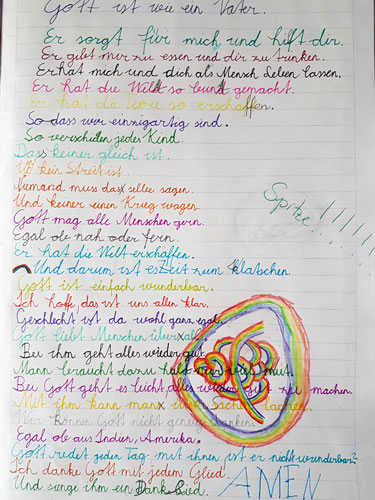 Gott ist wie ein Vater.
Er sorgt für mich und hilft dir.
Er gibt mir zu essen und dir zu trinken.
Er hat mich und dich als Mensch leben lassen.
Er hat die Welt so bunt gemacht.
Er hat die so erschaffen.
So dass wir einzigartig sind.
So verschieden jedes Kind.
Dass keiner gleich ist.
kein Streit ist.
Niemand muss das alles sagen.
Und keiner einen Krieg wagen.
Gott mag alle Menschen gern.
Spitze!!!!!!
Egal ob nah oder fern.
Er hat die Welt erschaffen.
Und darum ist es Zeit zum klatschen.
Gott ist einfach wunderbar.
Ich hoffe, das ist uns allen klar.
Geschlecht ist da wohl ganz egal.
Gott liebt Menschen überall.
Bei ihm geht alles wieder gut.
Mann braucht dazu mut.
Bei Gott geht es leicht alles zu machen.
Mit ihm kann man Sachen lachen.
Wir können Gott nicht genug danken.
Egal ob aus Indien, Amerika.
Gott redet jeden Tag mit ihnen ist er nicht wunderbar?
Ich danke Gott mit jedem Glied.
Und singe ihm ein Danklied.
AMEN